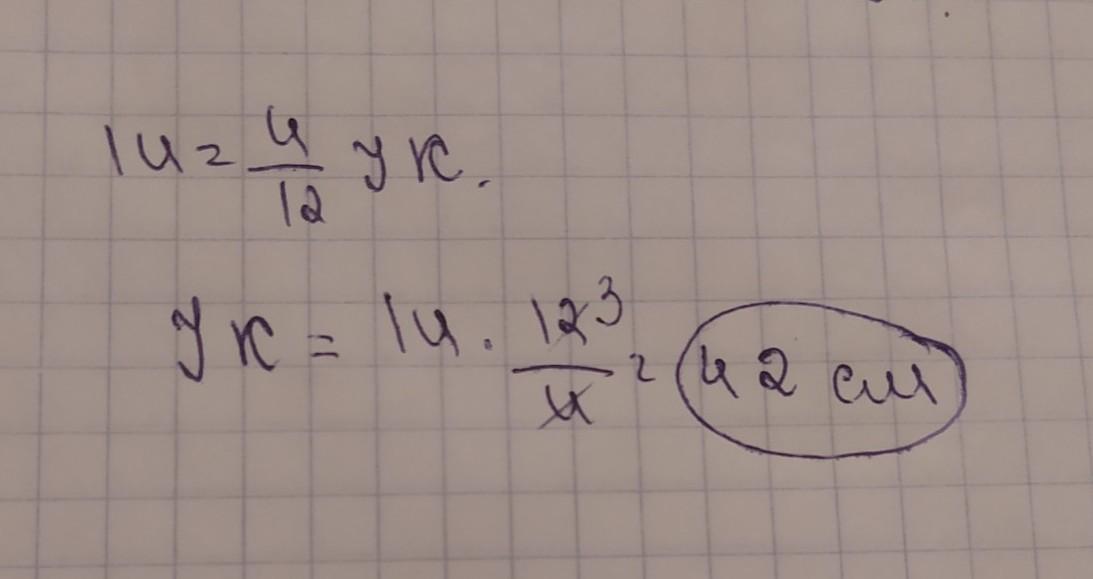 14 = 4/12 УК.
УК = 14 · 12³/4 = 42 см